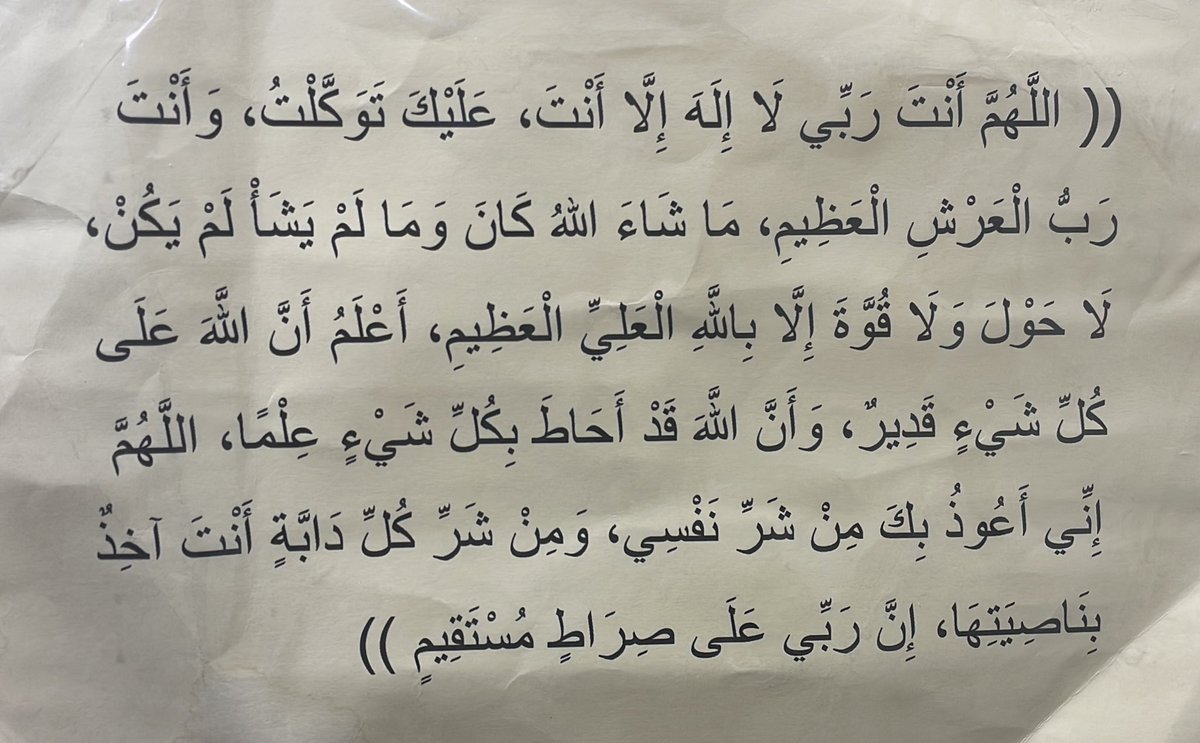 (( اللَّهُمَّ أَنْتَ رَبِّي لَا إِلَهَ إِلَّا أَنْتَ، عَلَيْكَ تَوَكَّلْتُ، وَأَنْتَ
رَبُّ الْعَرْشِ الْعَظِيمِ، مَا شَاءَ اللهُ كَانَ وَمَا لَمْ يَشَأْ لَمْ يَكُنْ،
لَا حَوْلَ وَلَا قُوَّةَ إِلَّا بِاللَّهِ الْعَلِيِّ الْعَظِيمِ، أَعْلَمُ أَنَّ اللَّهَ عَلَى
كُلِّ شَيْءٍ قَدِيرٌ، وَأَنَّ اللَّهَ قَدْ أَحَاطَ بِكُلِّ شَيْءٍ عِلْمًا، اللَّهُمَّ
إِنِّي أَعُوذُ بِكَ مِنْ شَرِّ نَفْسِي، وَمِنْ شَرِّ كُلِّ دَابَّةٍ أَنْتَ آخِذٌ
بِنَاصِيَتِهَا، إِنَّ رَبِّي عَلَى صِرَاطٍ مُسْتَقِيمٍ ))